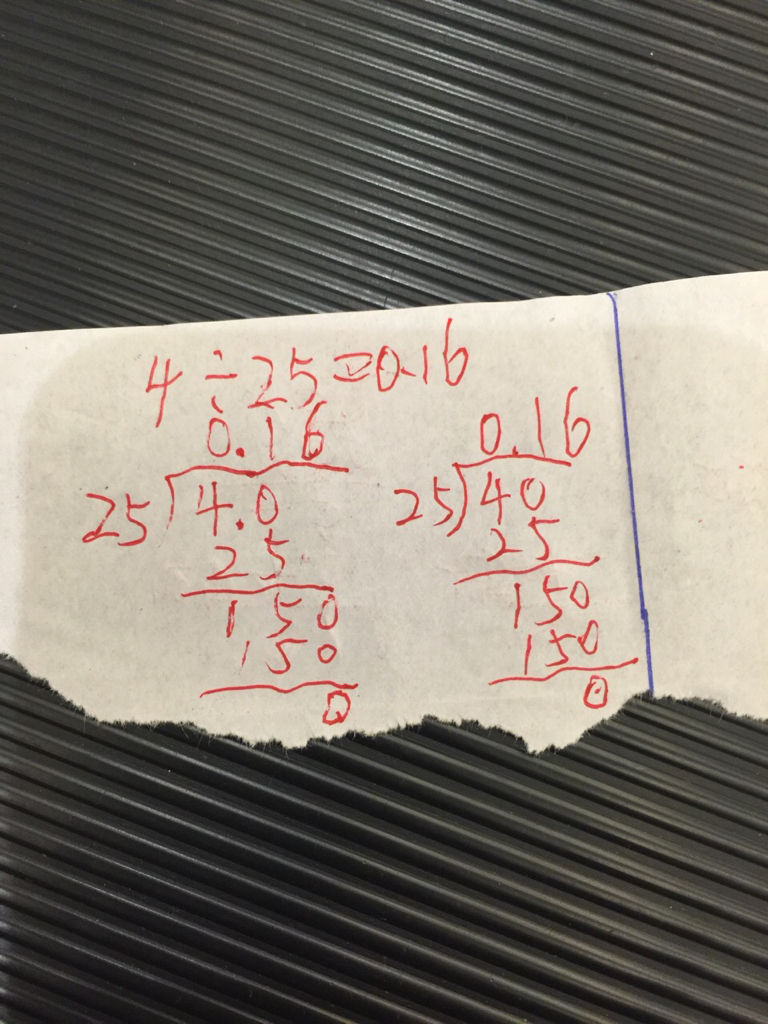 4 ÷ 25 = 0.16
0.16
25)4.0
25
150
150
0
0.16
25)40
25
150
150
0